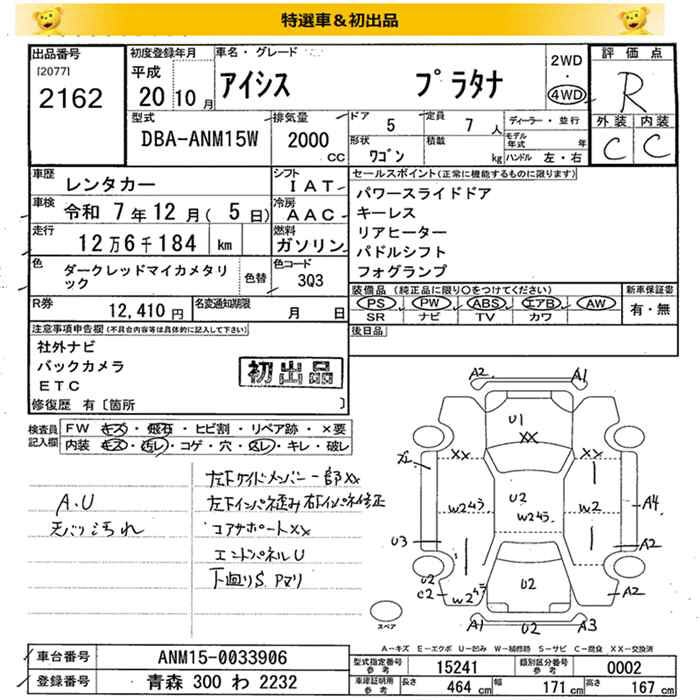 特選車&初出品
出品番号 初度登録年月 車名・グレード 2WD 評価点
[2077] 平成 アイシス プラタナ ・ R
2162 20 10月 4WD
型式 排気量 ドア 5 定員 7人 ディーラー・並行 外装 内装
DBA-ANM15W 2000 CC 形状 ワゴン 積載 kg モデル年式 年 C C
ハンドル 左・右
車歴 レンタカー シフト IAT セールスポイント(正常に機能するものに限ります)
車検 令和 7年12月(5日) 冷房 AAC パワースライドドア
走行 12万6千184 km 燃料 ガソリン キーレス
リアヒーター
色 ダークレッドマイカメタリック 色替 色コード 3Q3 パドルシフト
フォグランプ
R券 12,410円 名変通知期限 月 日 装備品(純正品に限り○をつけてください) 新車保証書
PS PW ABS エアB AW 有・無
SR ナビ TV カワ
注意事項申告欄(不具合内容等は具体的に記入して下さい) 後日品
社外ナビ
バックカメラ 初出品
ETC
修復歴 有〔箇所 〕
検査員記入欄 FW キズ・飛石・ヒビ割・リペア跡・×要
内装 キズ・汚レ・コゲ・穴・スレ・キレ・破レ
左下サイドメンバー一部XX
A.U 左下インパネ歪み右下インパネ修正
天バリ汚れ コアサポートXX
エンドパネルU
下廻りS Pマリ
A2 A1
U1
XX
XX XX
U2
W2 W2
A4
U3 A2
U2
C2 U2 A2
A1 U2 A3
スペア
A-キズ E-エクボ U-凹み W-補修跡 S-サビ C-腐食 XX-交換済
車台番号 ANM15-0033906 型式指定番号 参考 15241 類別区分番号 参考 0002
登録番号 青森 300 わ 2232 車庫証明用 参考 長さ 464 cm 幅 171 cm 高さ 167 cm